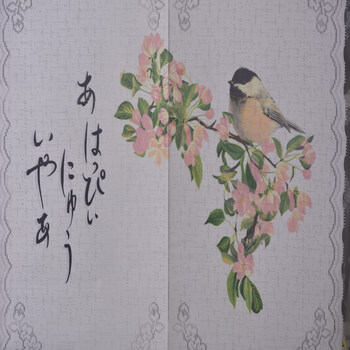 あはっぴぃ
にゅう
いやあ